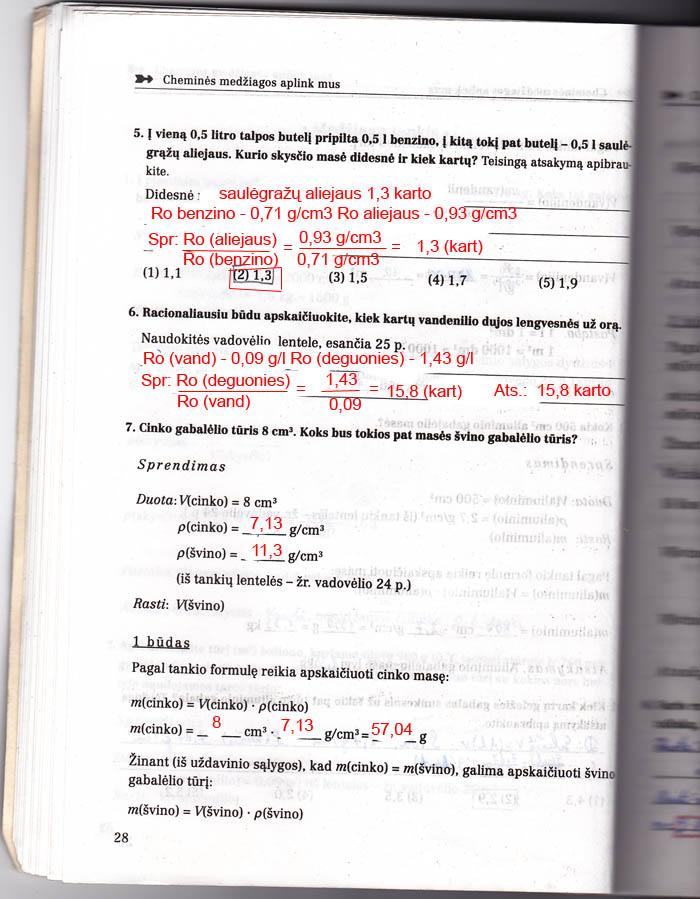 Cheminės medžiagos aplink mus
5. Į vieną 0,5 litro talpos butelį pripilta 0,5 l benzino, į kitą tokį pat butelį – 0,5 l saulė-
grąžų aliejaus. Kurio skysčio masė didesnė ir kiek kartų? Teisingą atsakymą apibrau-
kite.
Didesnė: saulėgražų aliejaus 1,3 karto
Ro benzino - 0,71 g/cm3 Ro aliejaus - 0,93 g/cm3
Spr: Ro (aliejaus) = 0,93 g/cm3 = 1,3 (kart)
Ro (benzino) 0,71 g/cm3
(1) 1,1 (2) 1,3 (3) 1,5 (4) 1,7 (5) 1,9
6. Racionaliausiu būdu apskaičiuokite, kiek kartų vandenilio dujos lengvesnės už orą.
Naudokitės vadovėlio lentele, esančia 25 p.
Ro (vand) - 0,09 g/l Ro (deguonies) - 1,43 g/l
Spr: Ro (deguonies) = 1,43 = 15,8 (kart) Ats.: 15,8 karto
Ro (vand) 0,09
7. Cinko gabalėlio tūris 8 cm³. Koks bus tokios pat masės švino gabalėlio tūris?
Sprendimas
Duota: V(cinko) = 8 cm³
ρ(cinko) = 7,13 g/cm³
ρ(švino) = 11,3 g/cm³
(iš tankių lentelės – žr. vadovėlio 24 p.)
Rasti: V(švino)
1 būdas
Pagal tankio formulę reikia apskaičiuoti cinko masę:
m(cinko) = V(cinko) · ρ(cinko)
m(cinko) = 8 cm³ · 7,13 g/cm³ = 57,04 g
Žinant (iš uždavinio sąlygos), kad m(cinko) = m(švino), galima apskaičiuoti švino
gabalėlio tūrį:
m(švino) = V(švino) · ρ(švino)
28